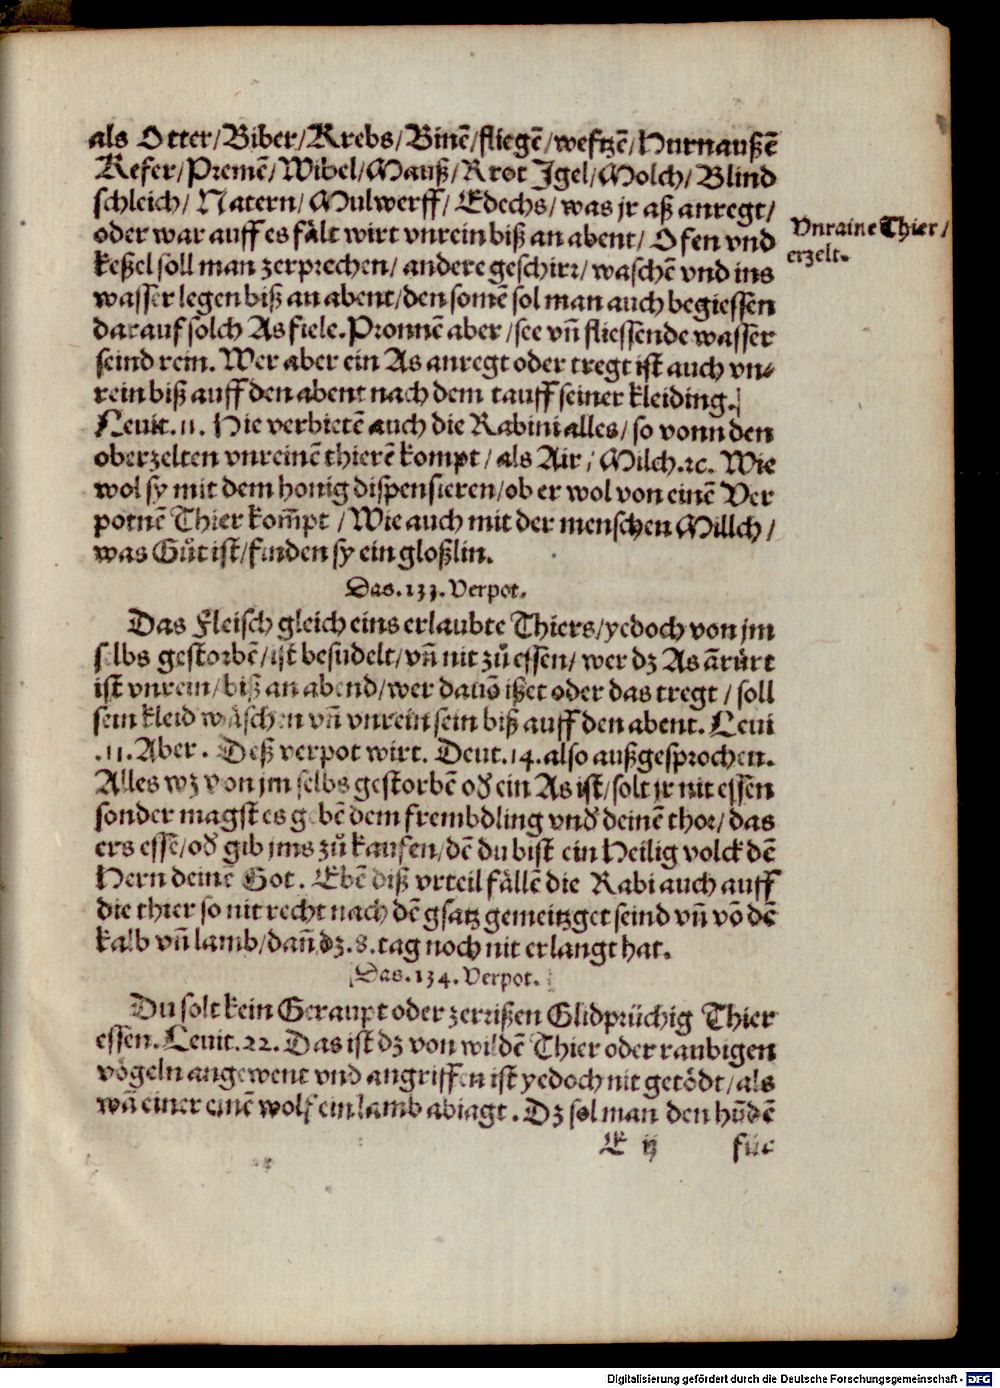 als Otter/Biber/Krebs/Binē/fliegē/weftzē/Hurnaußē
Kefer/Premē/Wibel/Mauß/Krot Igel/Molch/Blind
schleich/Natern/Mulwerff/Edechs/was jr aß anregt/
oder war auff es fålt wirt vnrein biß an abent/Ofen vnd
Vnraine Thier/
erzelt.
keßel soll man zerprechen/andere geschirr/waschē vnd ins
wasser legen biß an abent/den somē sol man auch begiessen
darauf solch As fiele. Pronnē aber/see vn̄ fliessende wasser
seind rein. Wer aber ein As anregt oder tregt ist auch vn⸗
rein biß auff den abent nach dem tauff seiner kleiding.
Leuit.11. Hie verbietē auch die Rabini alles/so vonn den
oberzelten vnreinē thierē kompt/als Air/Milch.ꝛc. Wie
wol sy mit dem honig dispensieren/ob er wol von einē Ver
potnē Thier kom̄pt/Wie auch mit der menschen Millch/
was Gůt ist/finden sy ein gloßlin.
Das.133.Verpot.
Das Fleisch gleich eins erlaubte Thiers/yedoch von jm
selbs gestorbē/ist besudelt/vn̄ nit zů essen/wer dz As ārůrt
ist vnrein/biß an abend/wer dauō ißet oder das tregt/soll
sein kleid wäschen vn̄ vnrein sein biß auff den abent. Leui
.11. Aber. Deß verpot wirt. Deut.14. also außgesprochen.
Alles wz von jm selbs gestorbē od̄ ein As ist/solt jr nit essen
sonder magst es gebē dem frembdling vnd̄ deinē thor/das
ers esse/od̄ gib jms zů kaufen/dē du bist ein Heilig volck dē
Hern deinē Got. Ebē diß vrteil fållē die Rabi auch auff
die thier so nit recht nach dē gsatz gemeitzget seind vn̄ vō dē
kalb vn̄ lamb/dan̄ dz.8. tag noch nit erlangt hat.
Das.134.Verpot.
Du solt kein Geraupt oder zerrißen Glidprüchig Thier
essen. Leuit.22. Das ist dz von wildē Thier oder raubigen
vögeln angewent vnd angriffen ist yedoch nit getödt/als
wā einer einē wolf ein lamb abiagt. Dz sol man den hūdē
E ij für
Digitalisierung gefördert durch die Deutsche Forschungsgemeinschaft - DFG